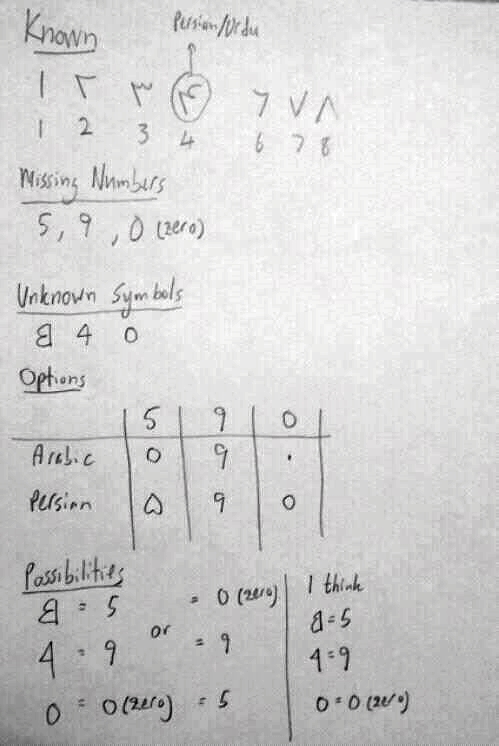 Known
Persian/Urdu
١ ٢ ٣ ۴ ٦ ٧ ٨
1 2 3 4 6 7 8
Missing Numbers
5, 9, 0 (zero)
Unknown Symbols
4 0
Options
5 9 0
Arabic 0 9 .
Persian ۵ 9 0
Possibilities
= 5 = 0 (zero)
4 = 9 or = 9
0 = 0 (zero) = 5
I think
=5
4=9
0=0 (zero)